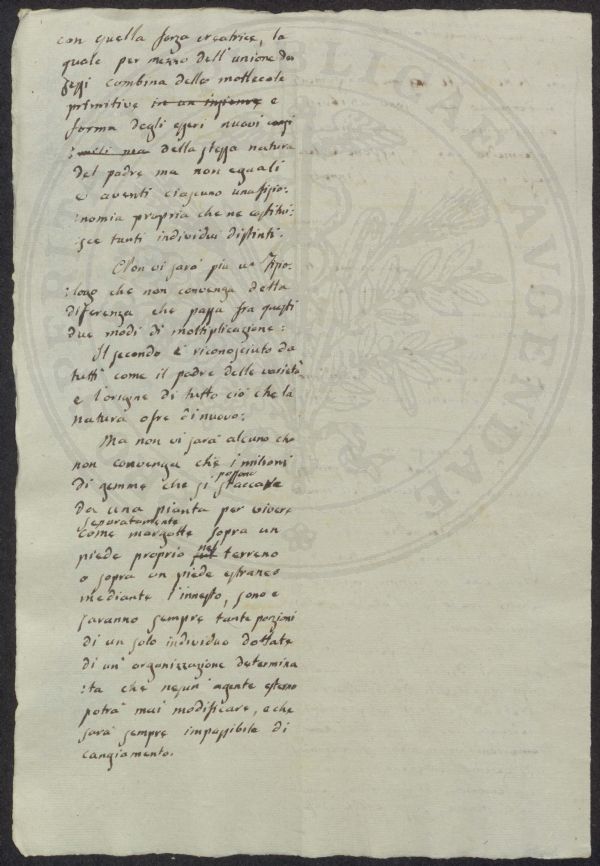 con quella forza creatrice, la
quale per mezzo dell'unione dei
sessi combina delle mollecole
primitive in un insieme e
forma degli esseri nuovi
della stessa natura
del padre ma non eguali
e aventi ciascuno una fisio:
:nomia propria che ne costitui:
:sce tanti individui distinti.
Non vi sarà più un Fisio:
:logo che non convenga della
diferenza che passa fra questi
due modi di moltiplicazione:
Il secondo è riconosciuto da
tutti come il padre delle varietà
e l'origine di tutto ciò che la
natura ofre di nuovo:
Ma non vi sarà alcuno che
non convenga che i milioni
di gemme che si possono staccare
da una pianta per vivere
separatamente
come margotte sopra un
piede proprio nel terreno
o sopra un piede estraneo
mediante l'innesto, sono e
saranno sempre tante porzioni
di un solo individuo dottate
di un'organizzazione determina
:ta che nesun agente esterno
potrà mai modificare, e che
sarà sempre impassibile di
cangiamento.
PUBLICAE
AUGENDAE